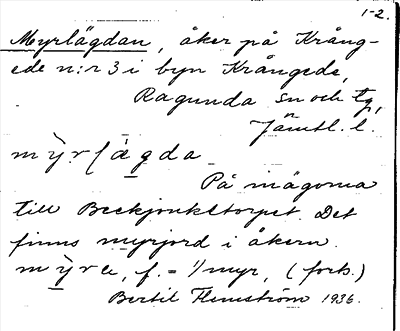 1-2.
Myrlägdan, åker på Krång-
ede n:r 3 i byn Krångede,
Ragunda sn och tg,
Jämtl. l.
På inägorna
till Beckjonkltorpet. Det
finns myrjord i åkern.
f. = 1/ myr, (forts.)
Bertil Flemström 1936.